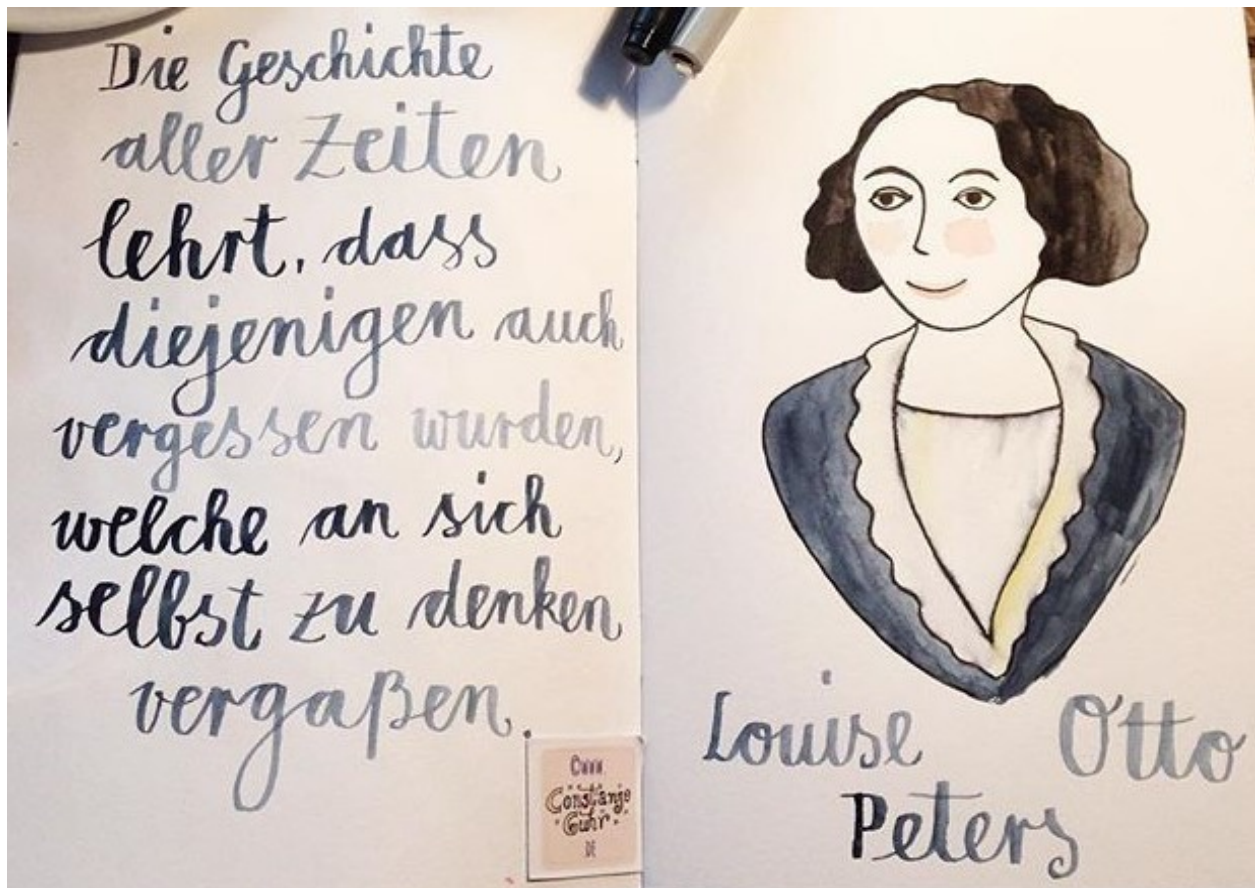 Die Geschichte
aller Zeiten
lehrt, dass
diejenigen auch
vergessen wurden,
welche an sich
selbst zu denken
vergaßen.
©www.
Constanze
Guhr.
DE
Louise Otto
Peters